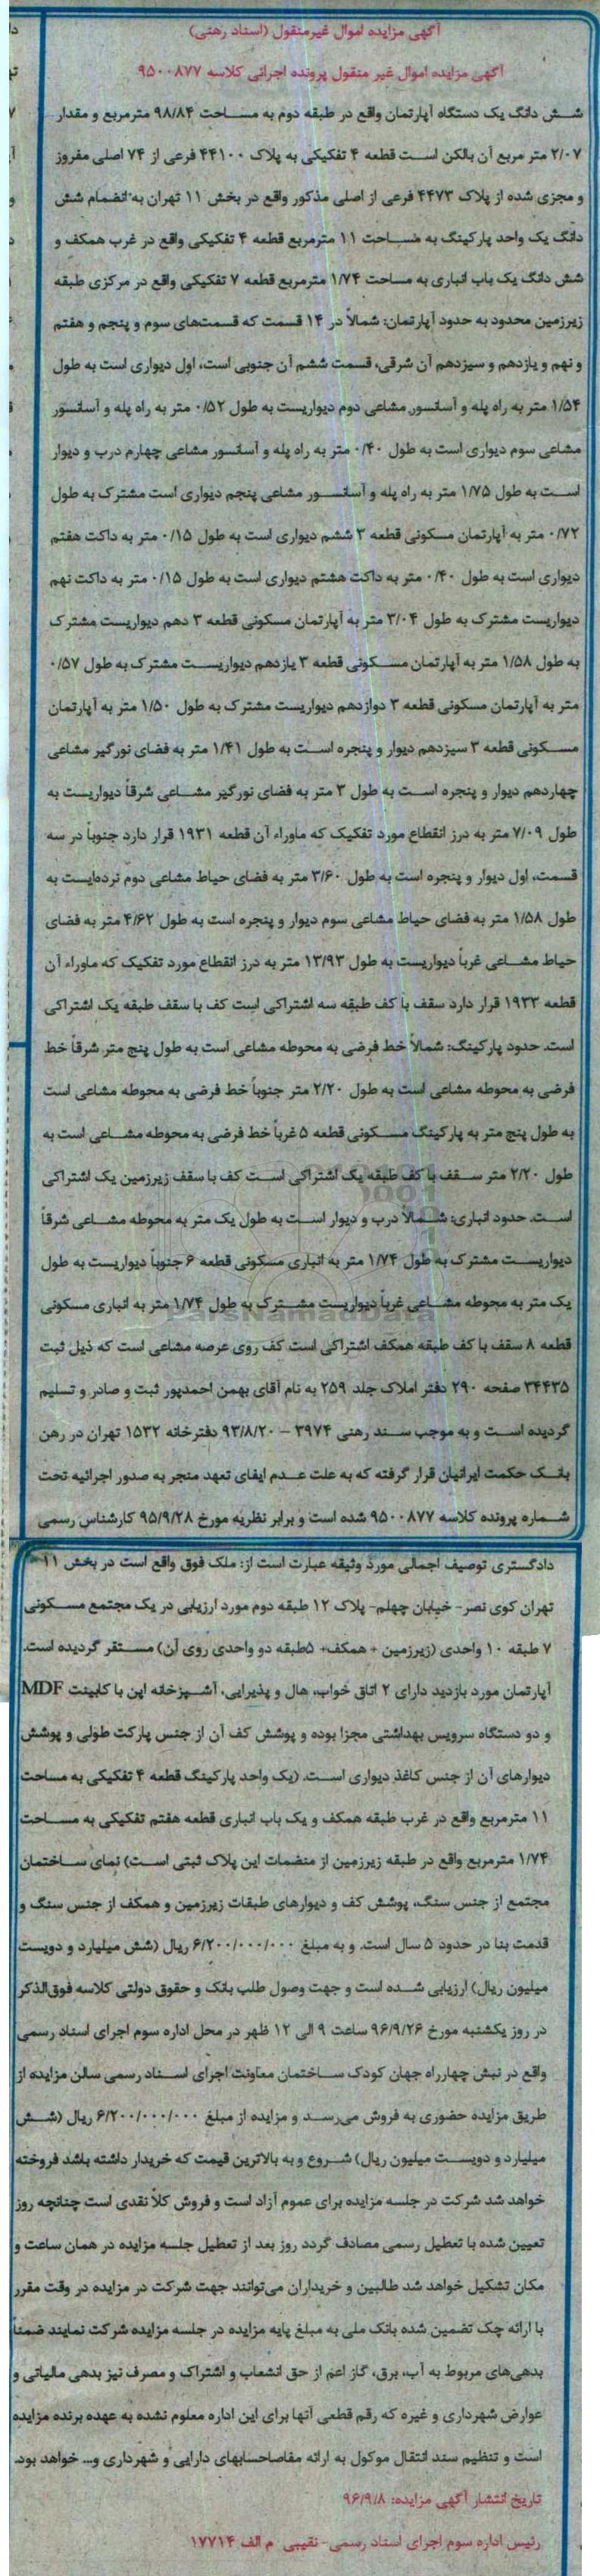 آگهی مزایده اموال غیرمنقول (اسناد رهنی)
آگهی مزایده اموال غیر منقول پرونده اجرائی کلاسه ۹۵۰۰۸۷۷
شش دانگ یک دستگاه آپارتمان واقع در طبقه دوم به مساحت ۹۸/۸۴ مترمربع و مقدار
۲/۰۷ متر مربع آن بالکن است قطعه ۴ تفکیکی به پلاک ۴۴۱۰۰ فرعی از ۷۴ اصلی مفروز
و مجزی شده از پلاک ۴۴۷۳ فرعی از اصلی مذکور واقع در بخش ۱۱ تهران به انضمام شش
دانگ یک واحد پارکینگ به مساحت ۱۱ مترمربع قطعه ۴ تفکیکی واقع در غرب همکف و
شش دانگ یک باب انباری به مساحت ۱/۷۴ مترمربع قطعه ۷ تفکیکی واقع در مرکزی طبقه
زیرزمین محدود به حدود آپارتمان: شمالاً در ۱۴ قسمت که قسمت‌های سوم و پنجم و هفتم
و نهم و یازدهم و سیزدهم آن شرقی، قسمت ششم آن جنوبی است، اول دیواری است به طول
۱/۵۴ متر به راه پله و آسانسور مشاعی دوم دیواریست به طول ۰/۵۲ متر به راه پله و آسانسور
مشاعی سوم دیواری است به طول ۰/۴۰ متر به راه پله و آسانسور مشاعی چهارم درب و دیوار
است به طول ۱/۷۵ متر به راه پله و آسانسور مشاعی پنجم دیواری است مشترک به طول
۰/۷۲ متر به آپارتمان مسکونی قطعه ۳ ششم دیواری است به طول ۰/۱۵ متر به داکت هفتم
دیواری است به طول ۰/۴۰ متر به داکت هشتم دیواری است به طول ۰/۱۵ متر به داکت نهم
دیواریست مشترک به طول ۳/۰۴ متر به آپارتمان مسکونی قطعه ۳ دهم دیواریست مشترک
به طول ۱/۵۸ متر به آپارتمان مسکونی قطعه ۳ یازدهم دیواریست مشترک به طول ۰/۵۷
متر به آپارتمان مسکونی قطعه ۳ دوازدهم دیواریست مشترک به طول ۱/۵۰ متر به آپارتمان
مسکونی قطعه ۳ سیزدهم دیوار و پنجره است به طول ۱/۴۱ متر به فضای نورگیر مشاعی
چهاردهم دیوار و پنجره است به طول ۳ متر به فضای نورگیر مشاعی شرقاً دیواریست به
طول ۷/۰۹ متر به درز انقطاع مورد تفکیک که ماوراء آن قطعه ۱۹۳۱ قرار دارد جنوباً در سه
قسمت، اول دیوار و پنجره است به طول ۳/۶۰ متر به فضای حیاط مشاعی دوم نرده‌ایست به
طول ۱/۵۸ متر به فضای حیاط مشاعی سوم دیوار و پنجره است به طول ۴/۶۲ متر به فضای
حیاط مشاعی غرباً دیواریست به طول ۱۳/۹۳ متر به درز انقطاع مورد تفکیک که ماوراء آن
قطعه ۱۹۳۳ قرار دارد سقف با کف طبقه سه اشتراکی است کف با سقف طبقه یک اشتراکی
است. حدود پارکینگ: شمالاً خط فرضی به محوطه مشاعی است به طول پنج متر شرقاً خط
فرضی به محوطه مشاعی است به طول ۲/۲۰ متر جنوباً خط فرضی به محوطه مشاعی است
به طول پنج متر به پارکینگ مسکونی قطعه ۵ غرباً خط فرضی به محوطه مشاعی است به
طول ۲/۲۰ متر سقف با کف طبقه یک اشتراکی است کف با سقف زیرزمین یک اشتراکی
است. حدود انباری: شمالاً درب و دیوار است به طول یک متر به محوطه مشاعی شرقاً
دیواریست مشترک به طول ۱/۷۴ متر به انباری مسکونی قطعه ۶ جنوباً دیواریست به طول
یک متر به محوطه مشاعی غرباً دیواریست مشترک به طول ۱/۷۴ متر به انباری مسکونی
ParsNamadData
قطعه ۸ سقف با کف طبقه همکف اشتراکی است کف روی عرصه مشاعی است که ذیل ثبت
۳۴۴۳۵ صفحه ۲۹۰ دفتر املاک جلد ۲۵۹ به نام آقای بهمن احمدپور ثبت و صادر و تسلیم
گردیده است و به موجب سند رهنی ۳۹۷۴ – ۹۳/۸/۲۰ دفترخانه ۱۵۳۲ تهران در رهن
بانک حکمت ایرانیان قرار گرفته که به علت عدم ایفای تعهد منجر به صدور اجرائیه تحت
شماره پرونده کلاسه ۹۵۰۰۸۷۷ شده است و برابر نظریه مورخ ۹۵/۹/۲۸ کارشناس رسمی
دادگستری توصیف اجمالی مورد وثیقه عبارت است از: ملک فوق واقع است در بخش ۱۱
تهران کوی نصر- خیابان چهلم- پلاک ۱۲ طبقه دوم مورد ارزیابی در یک مجتمع مسکونی
۷ طبقه ۱۰ واحدی (زیرزمین + همکف+ ۵طبقه دو واحدی روی آن) مستقر گردیده است.
آپارتمان مورد بازدید دارای ۲ اتاق خواب، هال و پذیرایی، آشپزخانه اپن با کابینت MDF
و دو دستگاه سرویس بهداشتی مجزا بوده و پوشش کف آن از جنس پارکت طولی و پوشش
دیوارهای آن از جنس کاغذ دیواری است. (یک واحد پارکینگ قطعه ۴ تفکیکی به مساحت
۱۱ مترمربع واقع در غرب طبقه همکف و یک باب انباری قطعه هفتم تفکیکی به مساحت
۱/۷۴ مترمربع واقع در طبقه زیرزمین از منضمات این پلاک ثبتی است) نمای ساختمان
مجتمع از جنس سنگ، پوشش کف و دیوارهای طبقات زیرزمین و همکف از جنس سنگ و
قدمت بنا در حدود ۵ سال است. و به مبلغ ۶/۲۰۰/۰۰۰/۰۰۰ ریال (شش میلیارد و دویست
میلیون ریال) ارزیابی شده است و جهت وصول طلب بانک و حقوق دولتی کلاسه فوق‌الذکر
در روز یکشنبه مورخ ۹۶/۹/۲۶ ساعت ۹ الی ۱۲ ظهر در محل اداره سوم اجرای اسناد رسمی
واقع در نبش چهارراه جهان کودک ساختمان معاونت اجرای اسناد رسمی سالن مزایده از
طریق مزایده حضوری به فروش می‌رسد و مزایده از مبلغ ۶/۲۰۰/۰۰۰/۰۰۰ ریال (شش
میلیارد و دویست میلیون ریال) شروع و به بالاترین قیمت که خریدار داشته باشد فروخته
خواهد شد شرکت در جلسه مزایده برای عموم آزاد است و فروش کلاً نقدی است چنانچه روز
تعیین شده با تعطیل رسمی مصادف گردد روز بعد از تعطیل جلسه مزایده در همان ساعت و
مکان تشکیل خواهد شد طالبین و خریداران می‌توانند جهت شرکت در مزایده در وقت مقرر
با ارائه چک تضمین شده بانک ملی به مبلغ پایه مزایده در جلسه مزایده شرکت نمایند ضمناً
بدهی‌های مربوط به آب، برق، گاز اعم از حق انشعاب و اشتراک و مصرف نیز بدهی مالیاتی و
عوارض شهرداری و غیره که رقم قطعی آنها برای این اداره معلوم نشده به عهده برنده مزایده
است و تنظیم سند انتقال موکول به ارائه مفاصاحسابهای دارایی و شهرداری و... خواهد بود.
تاریخ انتشار آگهی مزایده: ۹۶/۹/۸
رئیس اداره سوم اجرای اسناد رسمی- نقیبی م الف ۱۷۷۱۴